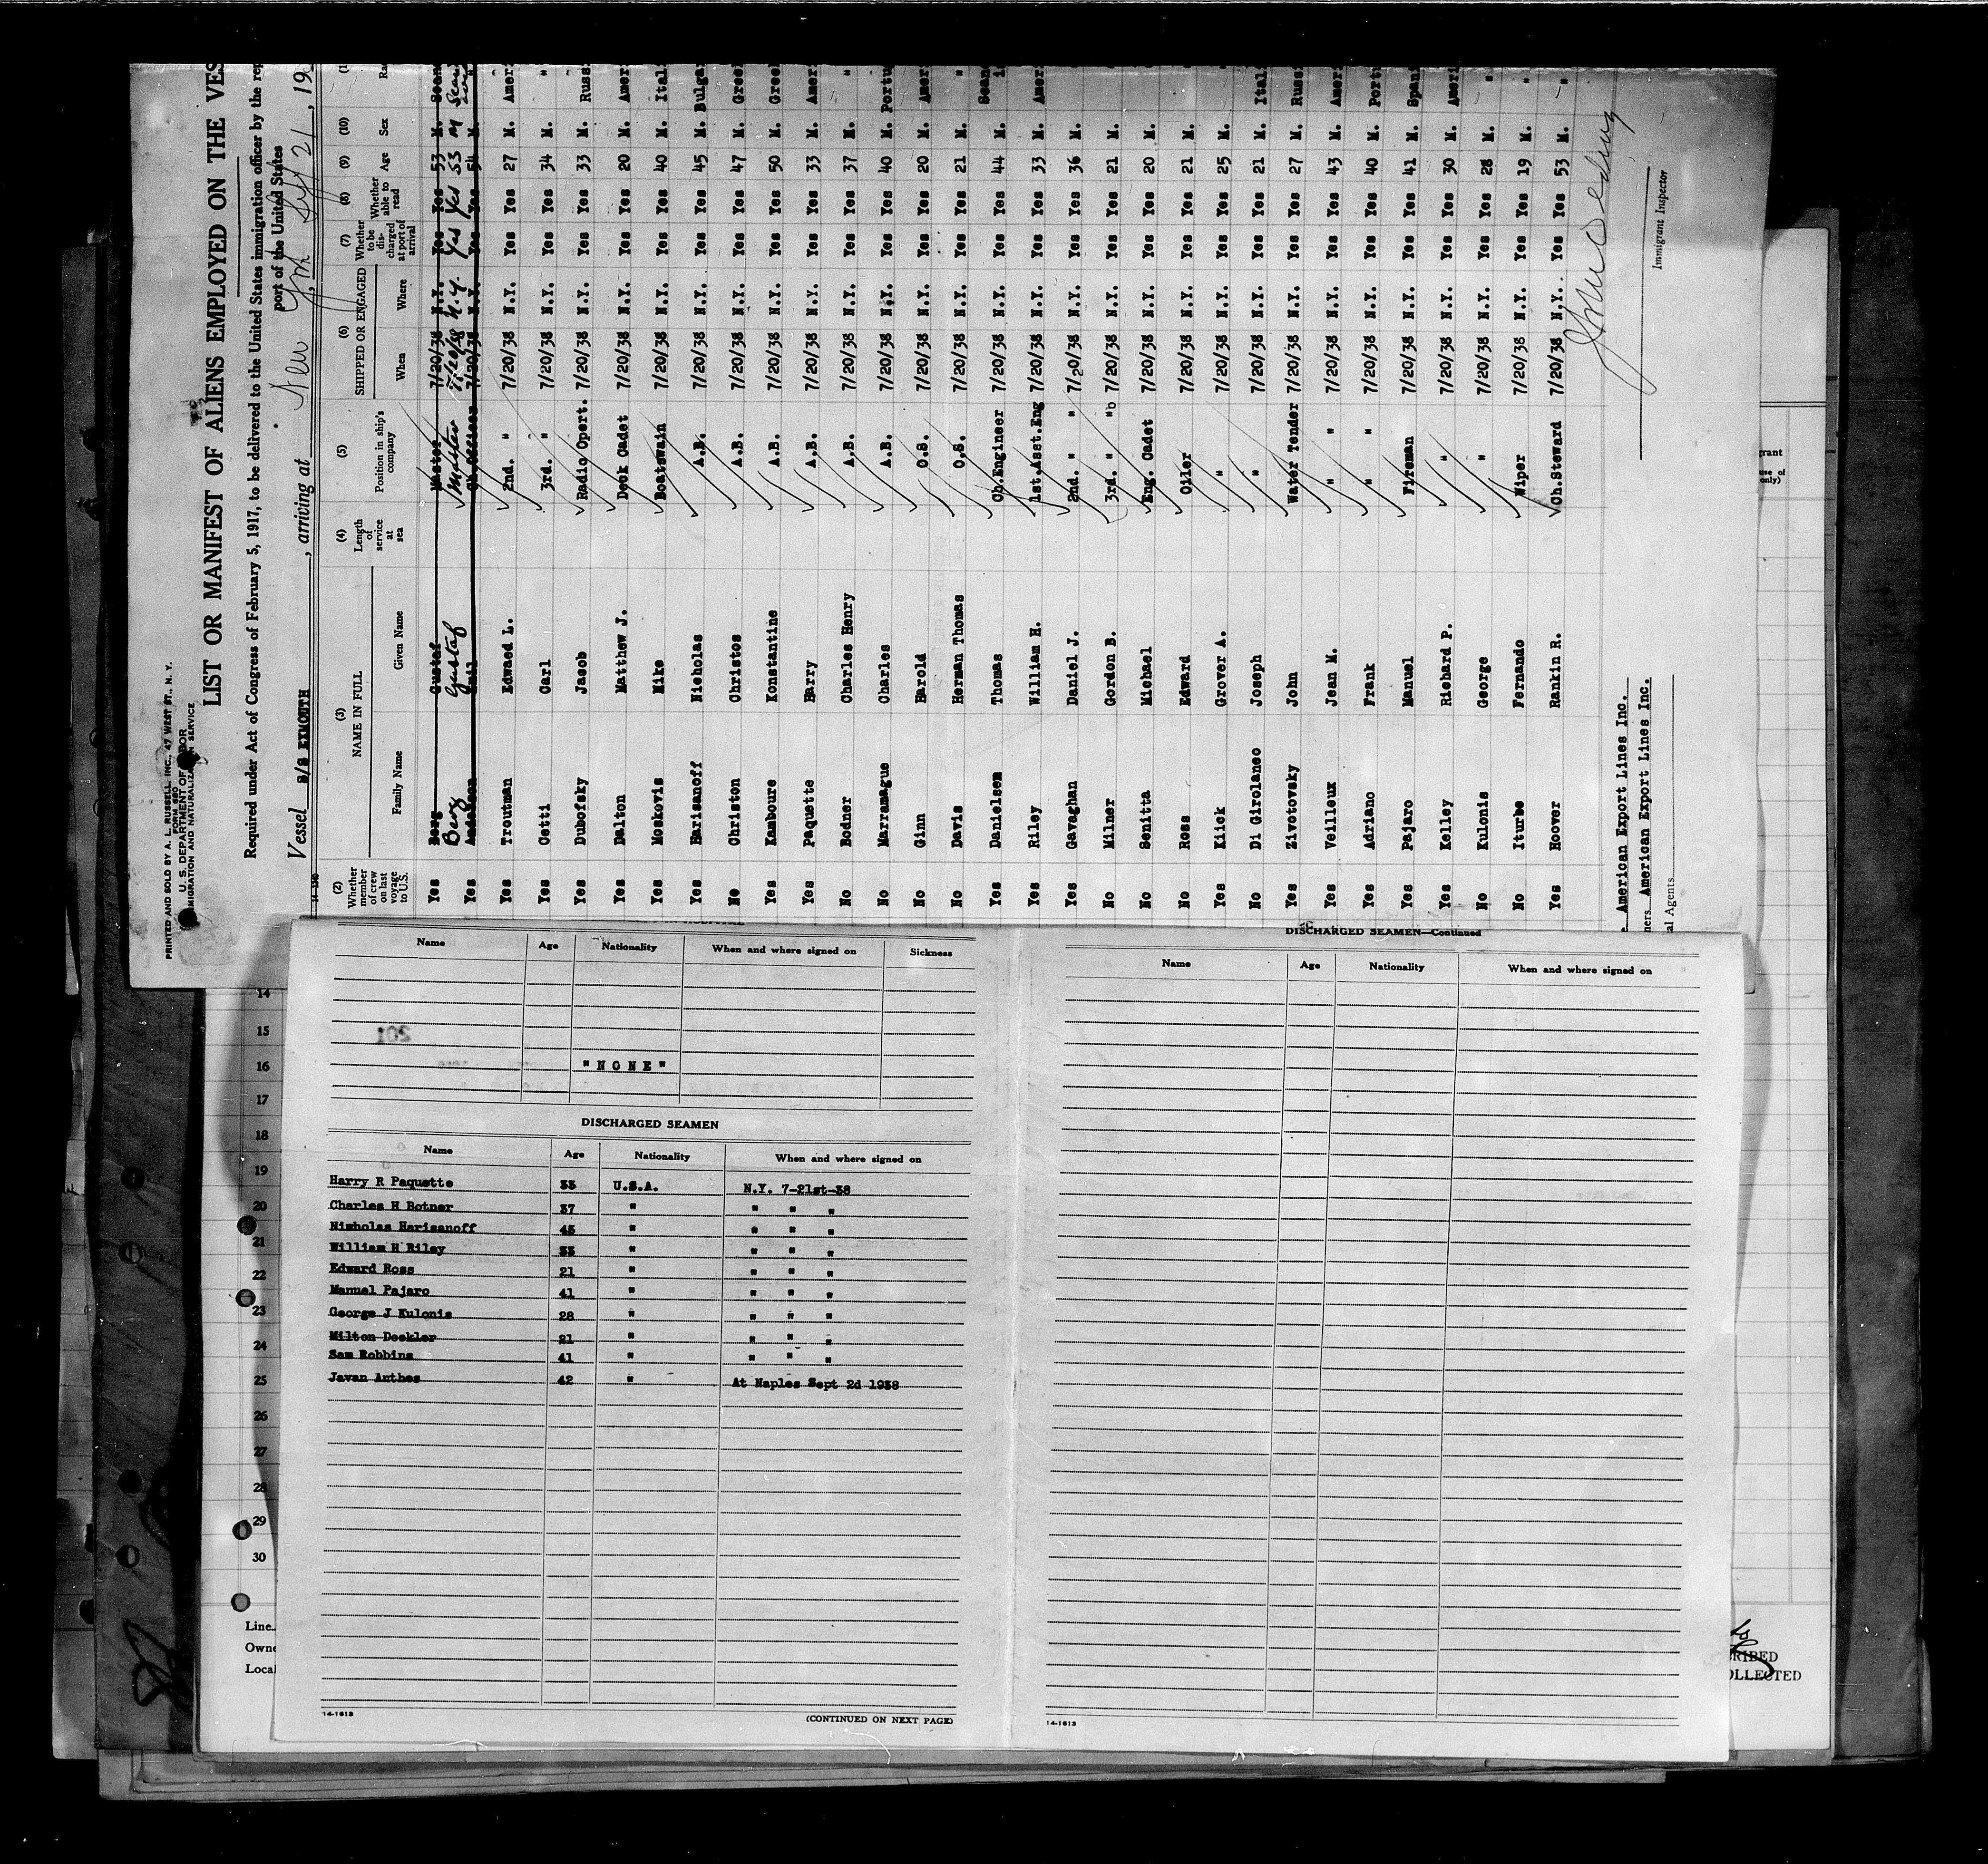 PRINTED AND SOLD BY A. L. RUSSELL, INC., 47 WEST ST., N. Y.
FORM 680
U. S. DEPARTMENT OF LABOR
IMMIGRATION AND NATURALIZATION SERVICE
LIST OR MANIFEST OF ALIENS EMPLOYED ON THE VES
Required under Act of Congress of February 5, 1917, to be delivered to the United States immigration officer by the rep
port of the United States
Vessel S/S EXMOUTH, arriving at New York Sept 21, 19
(2) Whether member of crew on last voyage to U.S. (3) NAME IN FULL Family Name Given Name (4) Length of service at sea (5) Position in ship's company (6) SHIPPED OR ENGAGED When Where (7) Whether to be discharged at port of arrival (8) Whether able to read (9) Age (10) Sex (1 Ra
Yes Berg Gustaf Master 7/20/38 N.Y. Yes Yes 53 M. Scan
Berg Gustaf Master 7/20/38 N.Y. Yes Yes 53 M Scan
Yes Anderson Emil 7/20/38 N.Y. Yes Yes 54 M. "
Yes Troutman Edwaed L. 2nd. " 7/20/38 N.Y. Yes Yes 27 M. Amer
Yes Cetti Carl 3rd. " 7/20/38 N.Y. Yes Yes 34 M. "
Yes Dubofsky Jacob Radio Opert. 7/20/38 N.Y. Yes Yes 33 M. Russ
Yes Dalton Matthew J. Deck Cadet 7/20/38 N.Y. Yes Yes 20 M. Amer
Yes Moskovis Mike Boatswain 7/20/38 N.Y. Yes Yes 40 M. Ital
Yes Harisanoff Nicholas A.B. 7/20/38 N.Y. Yes Yes 45 M. Bulga
No Christon Christos A.B. 7/20/38 N.Y. Yes Yes 47 M. Gree
Yes Kamboure Konstantine A.B. 7/20/38 N.Y. Yes Yes 50 M. Gree
Yes Paquette Harry A.B. 7/20/38 N.Y. Yes Yes 33 M. Amer
No Bodner Charles Henry A.B. 7/20/38 N.Y. Yes Yes 37 M. "
No Marramague Charles A.B. 7/20/38 N.Y. Yes Yes 40 M. Portu
No Ginn Harold O.S. 7/20/38 N.Y. Yes Yes 20 M. Amer
No Davis Herman Thomas O.S. 7/20/38 N.Y. Yes Yes 21 M. "
Yes Danielsen Thomas Ch.Engineer 7/20/38 N.Y. Yes Yes 44 M. Scan
Yes Riley William H. 1st.Asst.Eng 7/20/38 N.Y. Yes Yes 33 M. Amer
Yes Gavaghan Daniel J. 2nd. " " 7/20/38 N.Y. Yes Yes 36 M. "
No Milner Gordon B. 3rd. " " 7/20/38 N.Y. Yes Yes 21 M. "
No Senitta Michael Eng. Cadet 7/20/38 N.Y. Yes Yes 20 M. "
No Ross Edward Oiler 7/20/38 N.Y. Yes Yes 21 M. "
Yes Klick Grover A. " 7/20/38 N.Y. Yes Yes 25 M. "
No Di Girolaneo Joseph " 7/20/38 N.Y. Yes Yes 21 M. Ital
Yes Zivotovsky John Water Tender 7/20/38 N.Y. Yes Yes 27 M. Russ
Yes Veilleux Jean M. " " 7/20/38 N.Y. Yes Yes 43 M. Amer
Yes Adriano Frank " " 7/20/38 N.Y. Yes Yes 40 M. Port
Yes Pajaro Manuel Fireman 7/20/38 N.Y. Yes Yes 41 M. Span
Yes Kelley Richard P. " 7/20/38 N.Y. Yes Yes 30 M. Ameri
No Kulonis George " 7/20/38 N.Y. Yes Yes 28 M. "
No Iturbe Fernando Wiper 7/20/38 N.Y. Yes Yes 19 M. "
Yes Hoover Rankin R. Ch.Steward 7/20/38 N.Y. Yes Yes 53 M. "
American Export Lines Inc.
ners American Export Lines Inc.
al Agents
Immigrant Inspector
Name Age Nationality When and where signed on Sickness
"NONE"
DISCHARGED SEAMEN
Name Age Nationality When and where signed on
Harry R Paquette 33 U.S.A. N.Y. 7-21st-38
Charles H Botner 37 " " " "
Nicholas Harisanoff 45 " " " "
William H Riley 33 " " " "
Edward Ross 21 " " " "
Manuel Pajaro 41 " " " "
George J Kulonis 28 " " " "
Milton Deckler 21 " " " "
Sam Robbins 41 " " " "
Javan Anthes 42 " At Naples Sept 2d 1938
14-1613
(CONTINUED ON NEXT PAGE)
DISCHARGED SEAMEN—Continued
Name Age Nationality When and where signed on
14-1613
14
15
16
17
18
19
20
21
22
23
24
25
26
27
28
29
30
Line
Owne
Local
RIBED
OLLECTED